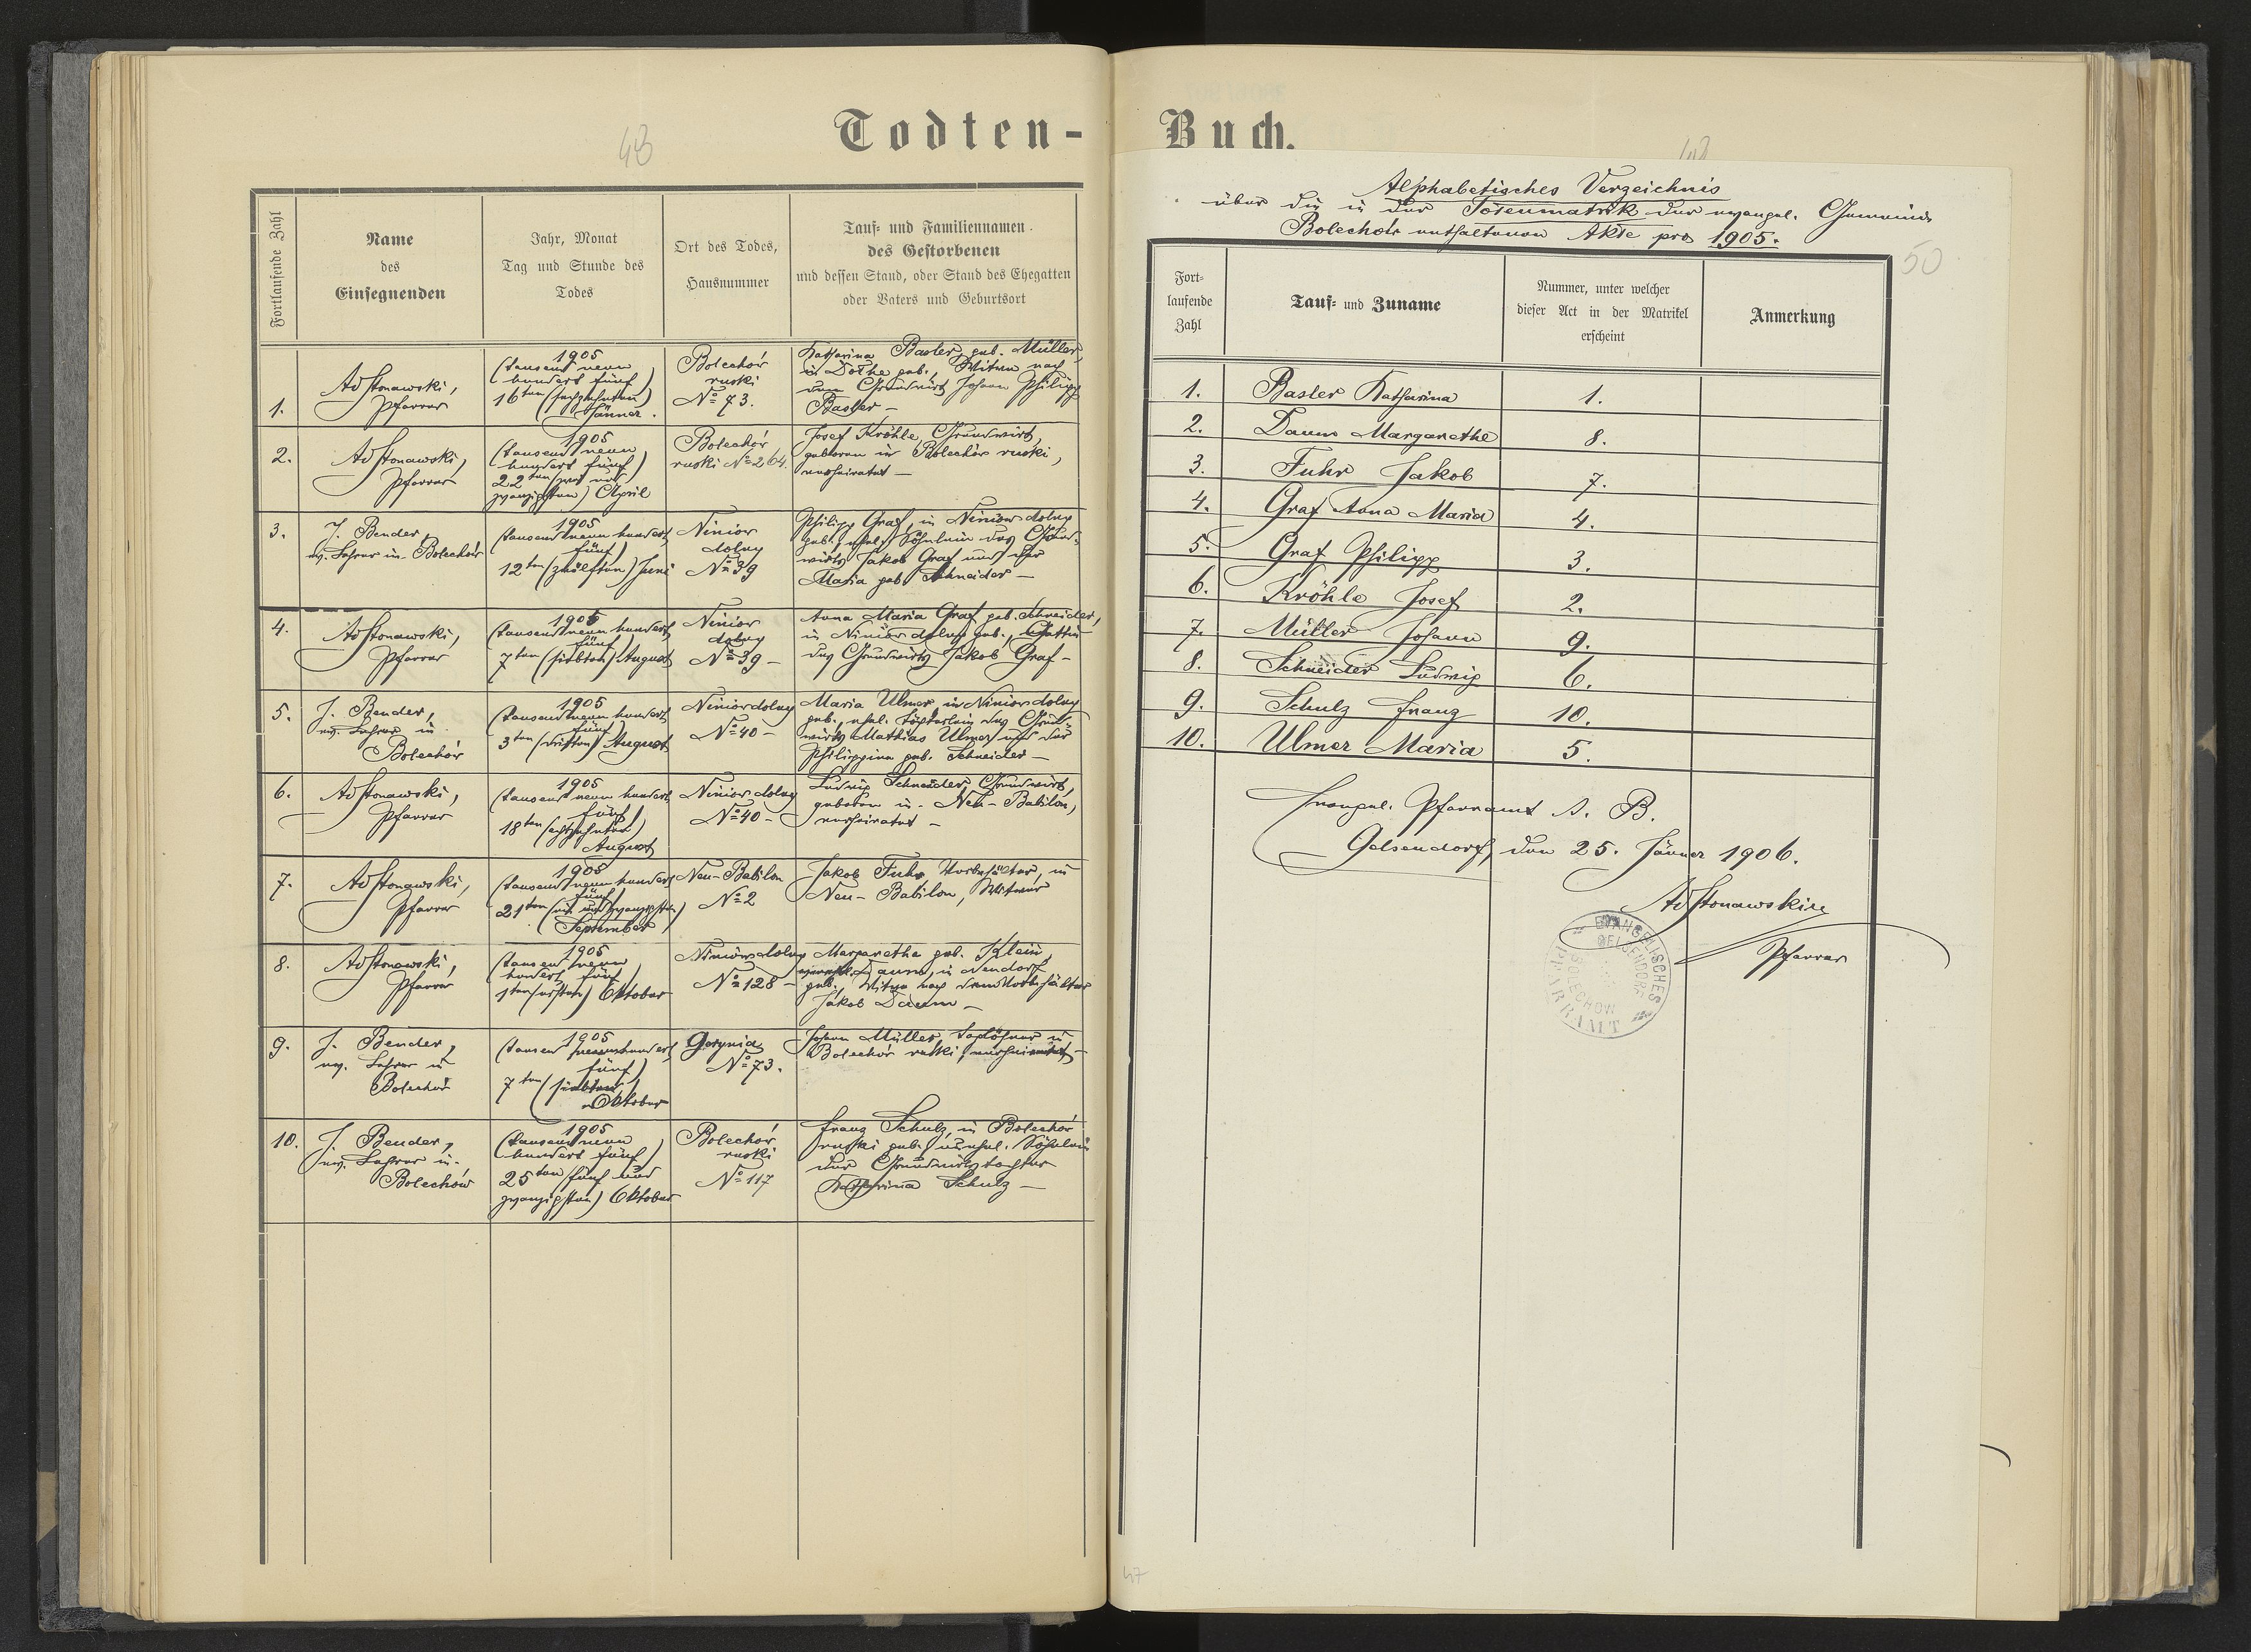 Todten-
48
Fortlaufende Zahl
Name
des
Einsegnenden
Jahr, Monat
Tag und Stunde des
Todes
Ort des Todes,
Hausnummer
Tauf- und Familiennamen
des Gestorbenen
und dessen Stand, oder Stand des Ehegatten
oder Vaters und Geburtsort
1.
Ad Stonawski,
Pfarrer
1905
(tausend neun
hundert fünf)
16ten (sechzehnten)
Jänner.
Bolechów
ruski
No 73.
Katharina Basler, geb. Müller,
in Dolhe geb., Witwe nach
dem Grundwirt Johann Philipp
Basler –
2.
Ad Stonawski,
Pfarrer
1905
(tausend neun
hundert fünf)
22ten (zwei und
zwanzigsten) April
Bolechów
ruski No 264.
Josef Kröhle, Grundwirt,
geboren in Bolechów ruski,
verheiratet –
3.
J. Bender,
ev. Lehrer in Bolechów
1905
(tausend neun hundert
fünf)
12ten (zwölften) Juni
Niniow
dolny
No 39
Philipp Graf, in Niniow dolny
geb., ehel. Söhnlein des Grund-
wirts Jakob Graf und der
Maria geb. Schneider –
4.
Ad Stonawski,
Pfarrer
1905
(tausend neun hundert
fünf)
7ten (siebten) August
Niniow
dolny
No 39 –
Anna Maria Graf geb. Schneider,
in Niniow dolny geb., Gattin
des Grundwirts Jakob Graf –
5.
J. Bender,
ev. Lehrer in
Bolechów
1905
(tausend neun hundert
fünf)
3ten (dritten) August
Niniow dolny
No 40 –
Maria Ulmer, in Niniow dolny
geb., ehel. Töchterlein des Grund-
wirts Mathias Ulmer und der
Philippina geb. Schneider –
6.
Ad Stonawski,
Pfarrer
1905
(tausend neun hundert
fünf)
18ten (achtzehnten)
August
Niniow dolny
No 40 –
Ludwig Schneider, Grundwirt,
geboren in Neu-Babilon,
verheiratet –
7.
Ad Stonawski,
Pfarrer
1905
(tausend neun hundert
fünf)
21ten (ein und zwanzigsten)
September
Neu-Babilon
No 2
Jakob Fuhr, Vorbehälter, in
Neu-Babilon, Witwer
8.
Ad Stonawski,
Pfarrer
1905
(tausend neun
hundert fünf)
1ten (ersten) Oktober
Niniow dolny
No 128 –
Margarethe geb. Klein,
Daum, in Neudorf
geb., Witwe nach dem Vorbehälter
Jakob Daum –
9.
J. Bender,
ev. Lehrer in
Bolechów
1905
(tausend neunhundert
fünf)
7ten (siebten)
Oktober
Gerynia
No 73.
Johann Müller, Taglöhner in
Bolechów ruski, verheiratet –
10.
J. Bender,
ev. Lehrer in
Bolechów
1905
(tausend neun
hundert fünf)
25ten (fünf und
zwanzigsten) Oktober
Bolechów
ruski
No 117
Franz Schulz, in Bolechów
ruski geb., unehel. Söhnlein
der Grundwirtstochter
Katharina Schulz –
Buch.
48
Alphabetisches Verzeichnis
über die in der Totenmatrik der evangel. Gemeinde
Bolechów enthaltenen Akte pro 1905.
50
Fort-
laufende
Zahl
Tauf- und Zuname
Nummer, unter welcher
dieser Act in der Matrikel
erscheint
Anmerkung
1. Basler Katharina 1.
2. Daum Margarethe 8.
3. Fuhr Jakob 7.
4. Graf Anna Maria 4.
5. Graf Philipp 3.
6. Kröhle Josef 2.
7. Müller Johann 9.
8. Schneider Ludwig 6.
9. Schulz Franz 10.
10. Ulmer Maria 5.
Evangel. Pfarramt A. B.
Gelsendorf, den 25. Jänner 1906.
Ad Stonawski
Pfarrer
EVANGELISCHES
PFARRAMT
GELSENDORF
BOLECHOW
47